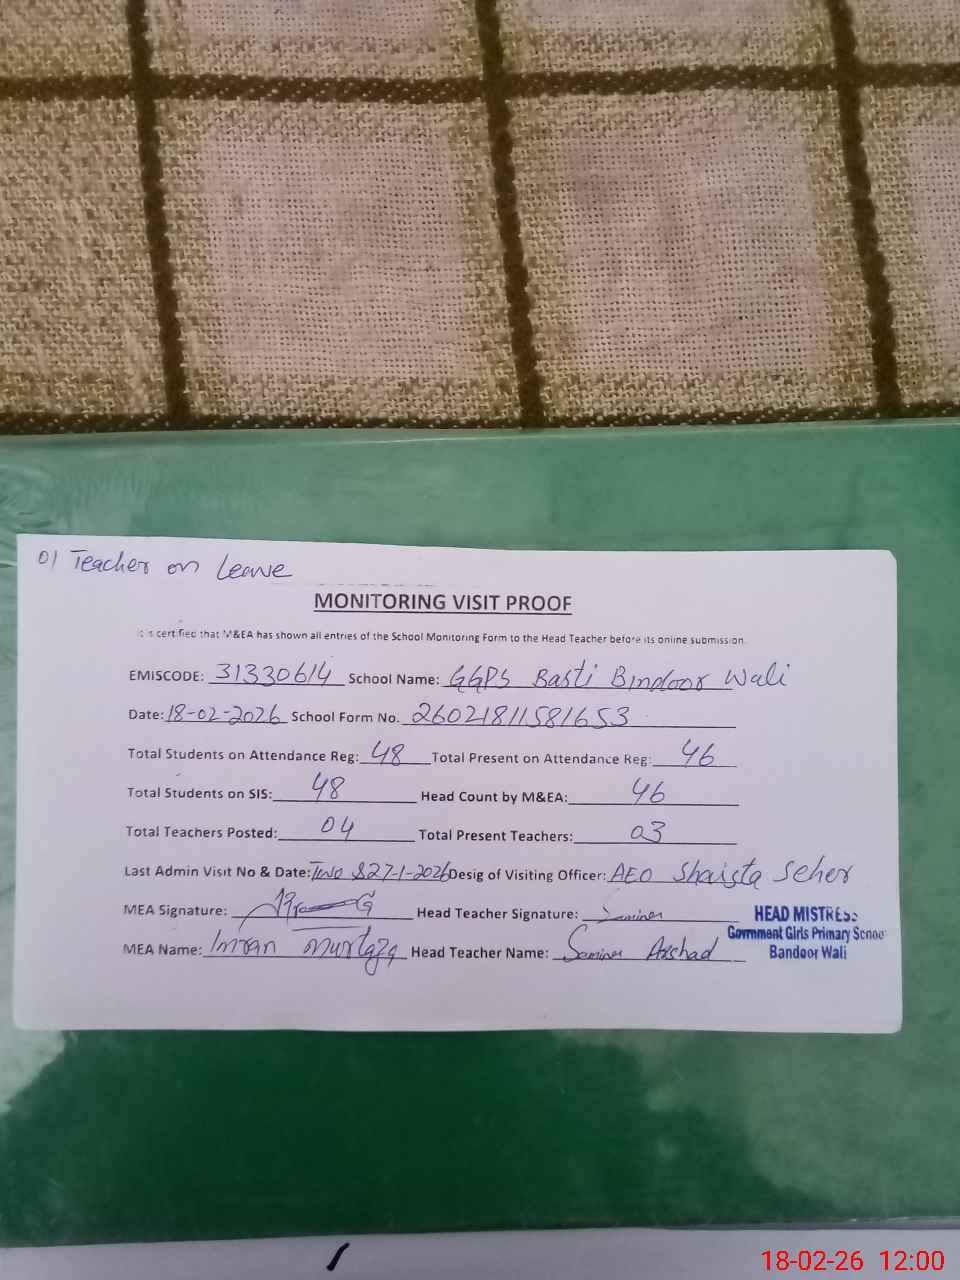 01 Teacher on Leave
MONITORING VISIT PROOF
It is certified that M&EA has shown all entries of the School Monitoring Form to the Head Teacher before its online submission.
EMISCODE: 31330614 School Name: GGPS Basti Bindoor Wali
Date: 18-02-2026 School Form No. 26021811581653
Total Students on Attendance Reg: 48 Total Present on Attendance Reg: 46
Total Students on SIS: 48 Head Count by M&EA: 46
Total Teachers Posted: 04 Total Present Teachers: 03
Last Admin Visit No & Date: Two &27-1-2026 Desig of Visiting Officer: AEO Shaista Seher
MEA Signature: Head Teacher Signature:
MEA Name: Imran Murtaza Head Teacher Name: Arshad
HEAD MISTRESS
Govrnment Girls Primary Schoo
Bandoor Wali
18-02-26 12:00